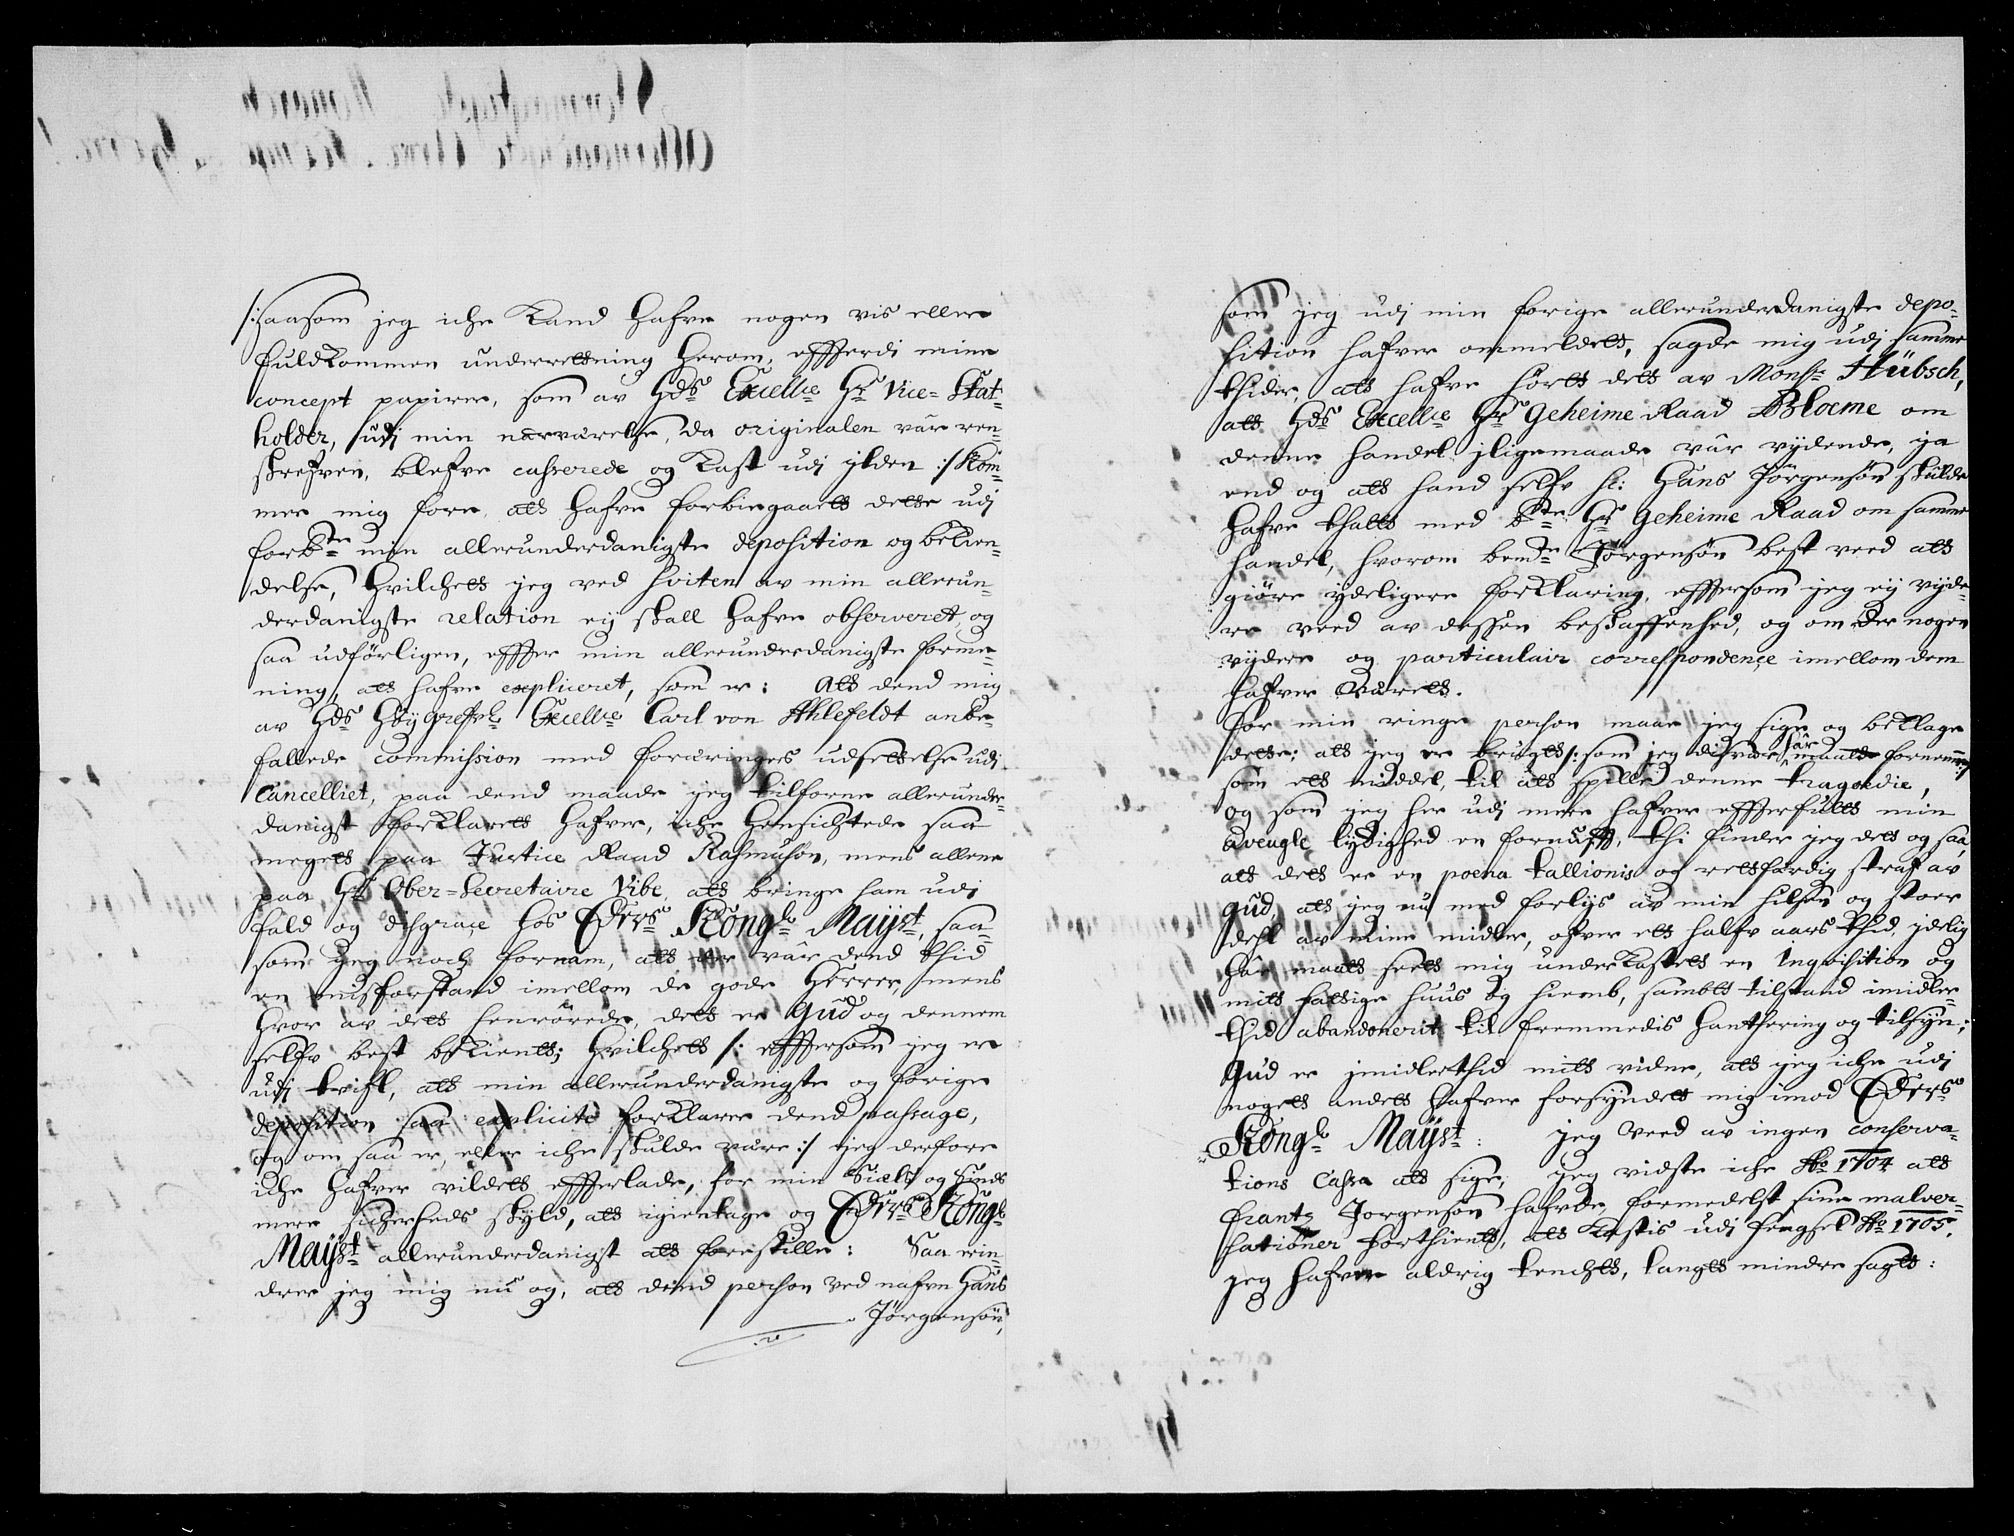 /:saasom jeg iche Kand hafve nogen vis eller
fuldkommen underretning herom, effterdi mine
concept papirer, som av Hds Excellce Hr Vice-Stat-
holder, udj min nærværelse, da originalen vår ren-
skrefven, blefve casserede og Kast udj ilden :/ Kom-
mer mig fore, att hafve forbiegaaett dette udj
forbte min allerunderdanigste deposition og bekien-
delse, hvilchett jeg ved sviten av min allerun-
derdanigste relation ey skall hafve observeret, og
saa udförligen, effter min allerunderdanigste forme-
ning, att hafve expliceret, som er: Att dend mig
av Hds Höygrefvl Excellce Carl von Ahlefeldt anbe-
fallede commission med foræringers udsettelse udj
Cancelliet, paa dend maade jeg tilforne allerunder-
danigst forklarett hafver, iche hensichtede saa
megett paa Justice Raad Rasmusön, mens allene
paa Hr Ober-Secretaire Vibe, att bringe ham udj
fald og disgrace hos Eders Kongl Mayst, saa-
som jeg noch fornam, att der vår dend thid
en misforstand imellem de gode Herrer, mens
hvor av dett henrörede, dett er Gud og dennem
selfv best bekientt; hvilchett /: effttersom jeg er
udj tvifl, att min allerunderdanigste og forige
deposition saa explicite forklarer dend passage,
og om saa er, eller iche skulde være :/ jeg derfore
iche hafver vildett effterlade, for min Siæls og Sinds
mere sicherheds skyld, att igientage og Eders Kongl
Mayst allerunderdanigst att forestille: Saa erin-
drer jeg mig nu og, att dend person ved nafvn Hans
Jörgensön,
som jeg udj min forige allerunderdanigste depo-
sition hafver ommeldett, sagde mig udj samme
thider, att hafve hört dett av Monsr Hübsch,
att Hds Excellce Hr Geheime Raad Bloeme om
denne handel iligemaade vår vydende, ja
end og att hand selfv sc: Hans Jörgensön skulde
hafve thalt med bte Hr Geheime Raad om samme
handel, hvorom bemte Jörgensön best veed att
giöre yderligere forklaring, efftersom jeg ey vyde-
re veed av dessen beskaffenhed, og om der nogen
vydere og particulair correspondençe imellom dem
hafver værett.
For min ringe person maae jeg sige og beklage
dette; att jeg er brugtt /: som jeg disvær har maatt fornemme :/
som ett middel, til att spille denne tragoedie,
og som jeg her udj mere hafver efferfult min
aveugle lydighed en fornufft, thi finder jeg dett og saa,
att dett er en poena tallionis og rettfærdig straf av
Gud, att jeg nu med forlys av min hilsen og stoer
dehl av mine midler, ofver ett halfv aars thid, ydelig
har maatt seett mig underkastett en Inqvisition og
mitt fattige huus og hiemb, sambt tilstand imidler-
thid abandonerit til fremmedis hanthering og tilsyn;
Gud er imidlerthid mitt vidne, att jeg iche udj
nogett andett hafver forsyndett mig imod Eders
Kongl Mayst: jeg veed av ingen conserva-
tions Cassa att sige, jeg vidste iche Ao 1704 att
Frantz Jorgensön hafde, formedelst sine malver-
sationer forthient, att kastis udj fengsel Ao 1705.
jeg hafver aldrig tenchtt, langtt mindre sagtt: